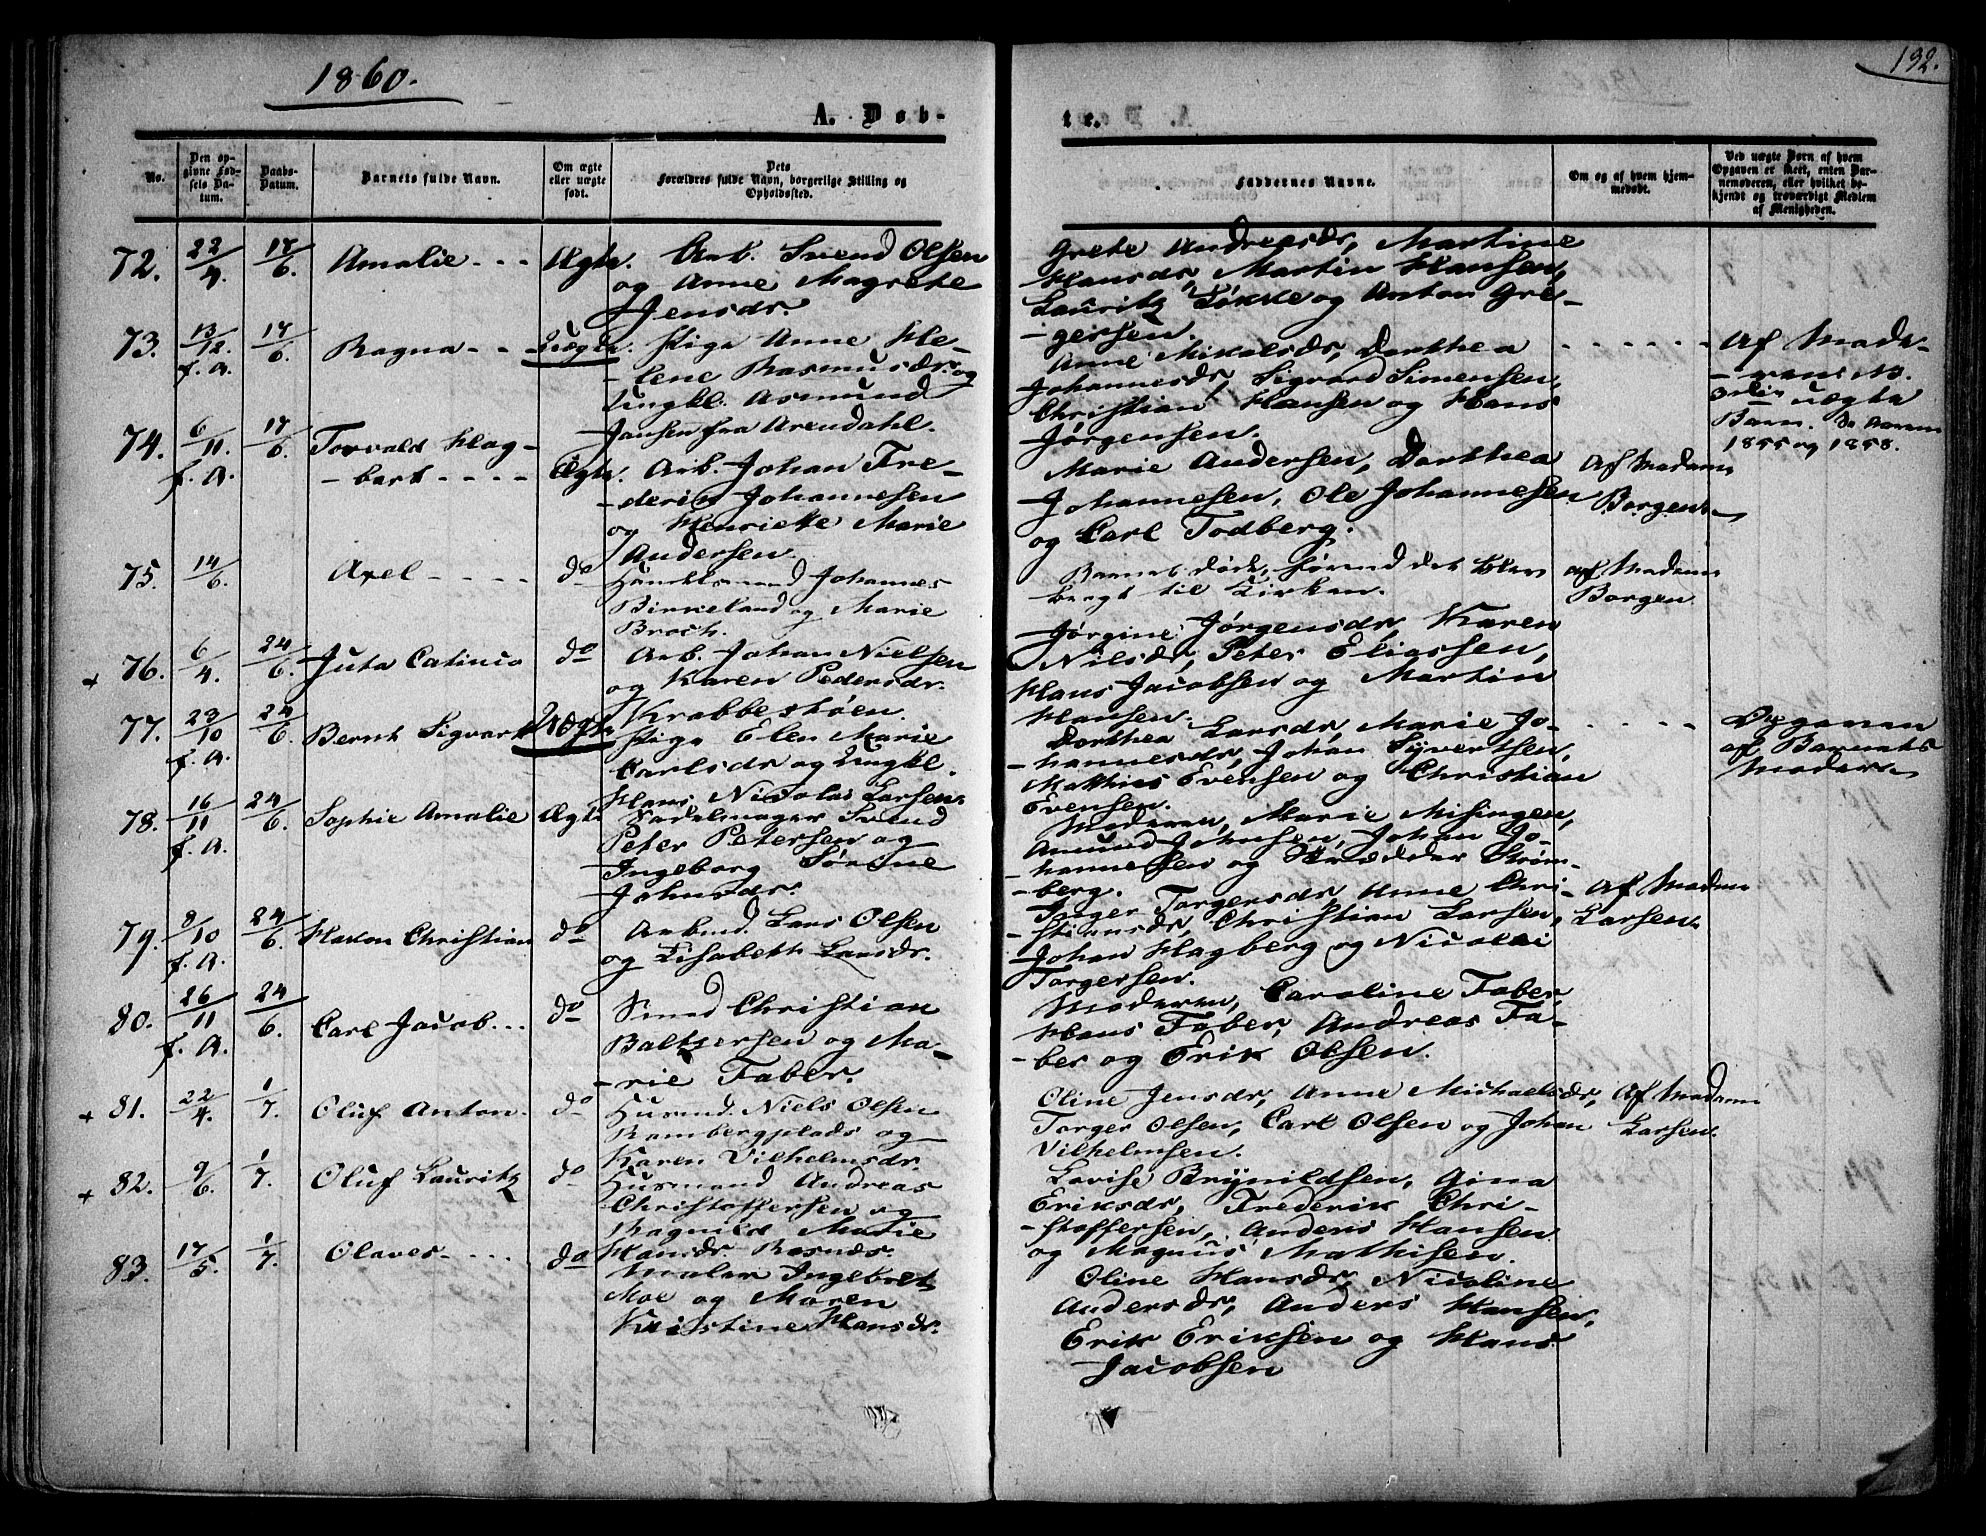 1860.
192.
A. Døb-
te.
No.
Den op-
givne Fød-
sels Da-
tum.
Daabs-
Datum.
Barnets fulde Navn.
Om ægte
eller uægte
født.
Dets
Forældres fulde Navn, borgerlige Stilling og
Opholdssted.
Faddernes Navne.
Om og af hvem hjem-
medøbt.
Ved uægte Børn af hvem
Opgaven er skeet, enten Bar-
nemoderen, eller hvilket be-
kjendt og troværdigt Medlem
af Menigheden.
72. 22/4. 17/6. Amalie - - - Ægte. Arb. Svend Olsen
og Anne Magrete
Jensdr.
Grete Andreasdr, Martine
Hansdr, Martin Hansen,
Lauritz Løkke og Anton Gre-
-gersen.
73. 13/12. f. A. 17/6. Ragna - - Uægte. Pige Anne He-
-lene Rasmusdr. og
Ungkl. Asmund
Jansen fra Arendahl.
Anne Mikalsdr, Dorthea
Johannesdr, Sigvard Simensen,
Christian Hansen og Hans
Jørgensen.
- - - - - -
Af Mode-
-rens N.
3die uægte
Barn. De Aarene
1855 og 1858.
74. 6/11. f. A. 17/6. Torvald Hag-
-bart - - - - Ægte. Arb. Johan Fre-
-derik Johannesen
og Henriette Marie
Andersen.
Marie Andersen, Dorthea
Johannesen, Ole Johannesen
og Carl Todberg.
Af Madam
Borgen
75. 14/6. Axel - - - - do Handelsmand Johannes
Birkeland og Marie
Broch.
Barnet døde, førend det blev
bragt til Kirken.
af Madam
Borgen
+ 76. 6/4. 24/6. Juta Catinca do Arb. Johan Nielsen
og Karen Pedersdr.
Krabbestøen.
Jørgine Jørgensdr, Karen
Nilsdr, Peter Eliassen,
Hans Jacobsen og Martin
Hansen.
77. 23/10 f. A. 24/6. Bernt Sigvart Uægte Pige Elen Marie
Carlsdr og Ungkl.
Hans Nicolai Larsen.
Dorthea Larsdr, Marie Jo-
-hannesdr, Johan Syvertsen,
Mathias Evensen og Christian
Evensen.
- - - - -
Opgaven
af Barnets
Moderen
78. 16/11 f. A. 24/6. Sophie Amalie Ægte Sadelmager Svend
Peter Petersen og
Ingeborg Sørine
Johnsdr.
Moderen, Marie Misingen,
Amund Johnsen, Johan Jo-
-hannesen og Skrædder Strøm-
-berg.
79. 8/10 f. A. 24/6. Hakon Christian do Arbmd. Lars Olsen
og Lisabeth Larsdr.
Inger Torgersdr, Anne Chri-
-stiansdr, Christian Larsen,
Johan Hagberg og Nicolai
Torgersen.
Af Madam
Larsen.
80. 26/11 f. A. 24/6. Carl Jacob... do Smed Christian
Baltzersen og Ma-
-rie Faber.
Moderen, Caroline Faber,
Hans Faber, Andreas Fa-
-ber og Erik Olsen.
+ 81. 22/4. 1/7. Oluf Anton. do Husmd. Niels Olsen
Rambergplads og
Karen Vilhelmsdr.
Oline Jensdr, Anne Michaelsdr,
Torger Olsen, Carl Olsen og Johan
Vilhelmsen.
Af Madam
Larsen.
+ 82. 9/6. 1/7. Oluf Lauritz do Husmand Andreas
Christoffersen og
Ragnild Marie
Hansdr. Rasnæs.
Lovise Brynildsen, Gina
Eriksdr, Frederik Chri-
-stoffersen, Anders Hansen
og Magnus Mathisen.
83. 17/5. 1/7. Olaves - - - - do Maler Ingebret
Moe og Maren
Kristine Hansdr.
Oline Hansdr, Nicoline
Andersdr, Anders Hansen,
Erik Eriksen og Hans
Jacobsen